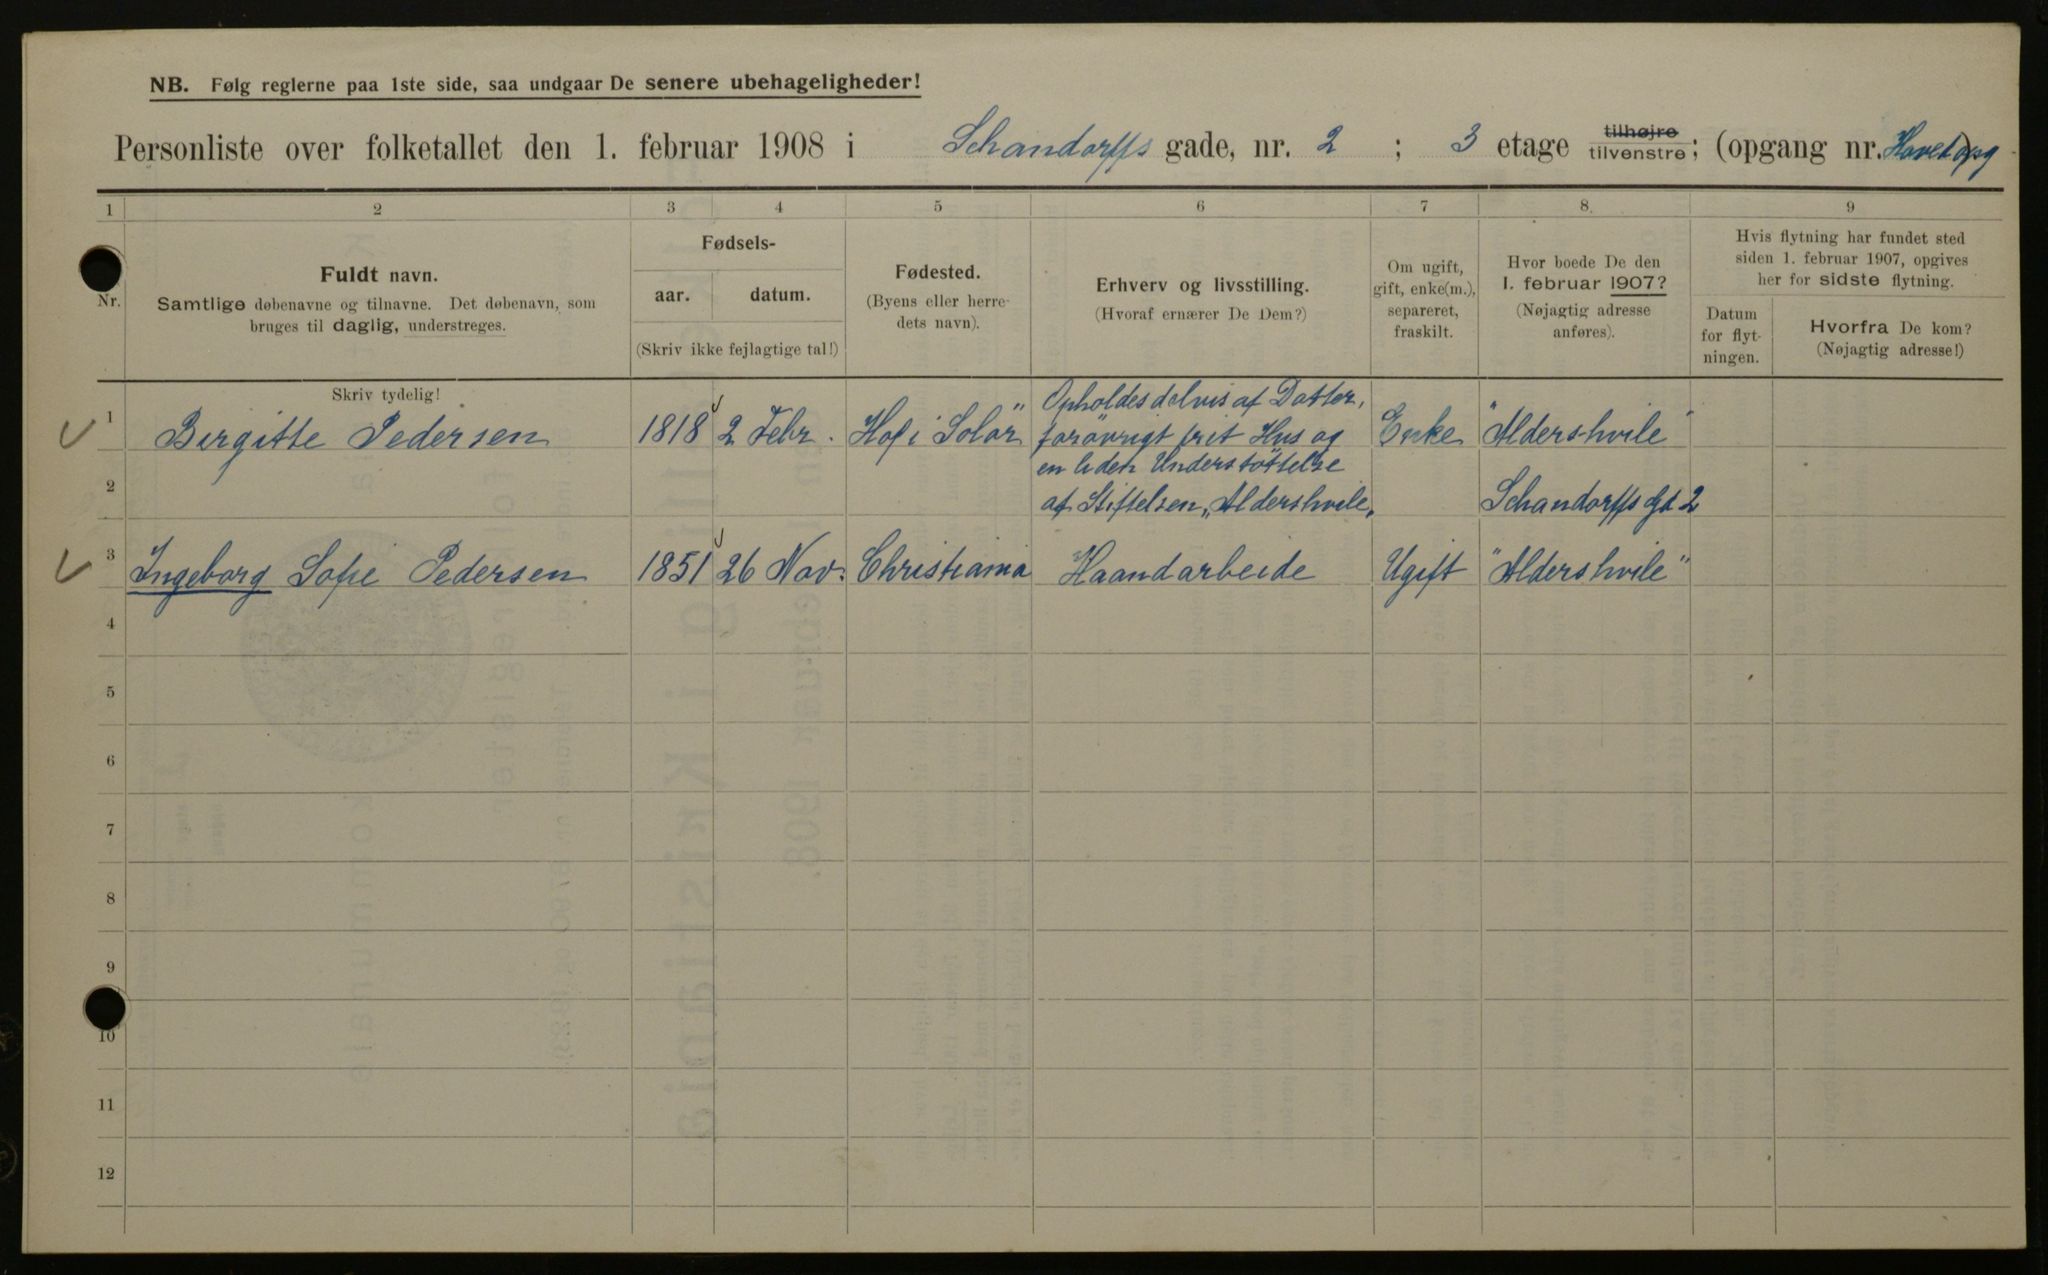 NB. Følg reglerne paa 1ste side, saa undgaar De senere ubehageligheder!
Personliste over folketallet den 1. februar 1908 i Schandorffs gade, nr. 2 ; 3 etage tilhøjre tilvenstre; (opgang nr. Hovedopg)
1 2 3 4 5 6 7 8. 9
Nr.
Fuldt navn.
Samtlige døbenavne og tilnavne. Det døbenavn, som
bruges til daglig, understreges.
Fødsels-
aar. datum.
(Skriv ikke fejlagtige tal!)
Fødested.
(Byens eller herre-
dets navn).
Erhverv og livsstilling.
(Hvoraf ernærer De Dem?)
Om ugift,
gift, enke(m.),
separeret,
fraskilt.
Hvor boede De den
1. februar 1907?
(Nøjagtig adresse
anføres).
Hvis flytning har fundet sted
siden 1. februar 1907, opgives
her for sidste flytning.
Datum
for flyt-
ningen.
Hvorfra De kom?
(Nøjagtig adresse!)
Skriv tydelig!
1 Birgitte Pedersen 1818 2 Febr. Hof i Solör
Opholdes delvis af Datter,
forøvrigt frit Hus og
en liden Understöttelse
af Stiftelsen „Aldershvile„
Enke "Aldershvile"
2 Schandorffs Gd 2
3 Ingeborg Sofie Pedersen 1851 26 Nov. Christiania Haandarbeide Ugift "Aldershvile"
4
5
6
7
8
9
10
11
12